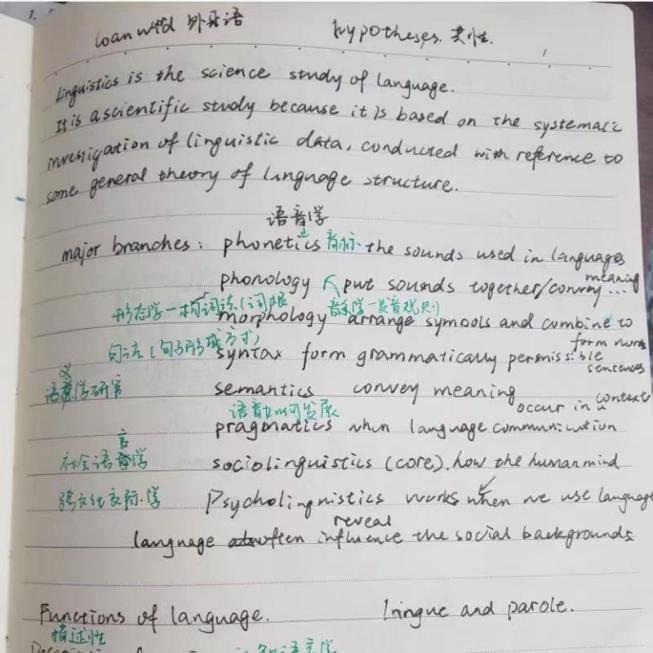 loanword 外来语 hypotheses. 共性.
Linguistics is the science study of language.
It is a scientific study because it is based on the systematic
investigation of linguistic data, conducted with reference to
some general theory of language structure.
语音学
major branches: phonetics 音标 the sounds used in languages
phonology put sounds together/convey meaning ...
形态学—构词法(词根 音系学—发音规则)
morphology arrange symbols and combine to
form words
句法(句子形成方式)
syntax form grammatically permissible
sentences
语义学研究 semantics convey meaning
语言如何发展 occur in a context
pragmatics when language communication
社会语言学 sociolinguistics (core). how the human mind
跨文化交际学 Psycholingnistics works when we use language
reveal
language often influence the social backgrounds
Functions of language. lringue and parole.
描述性